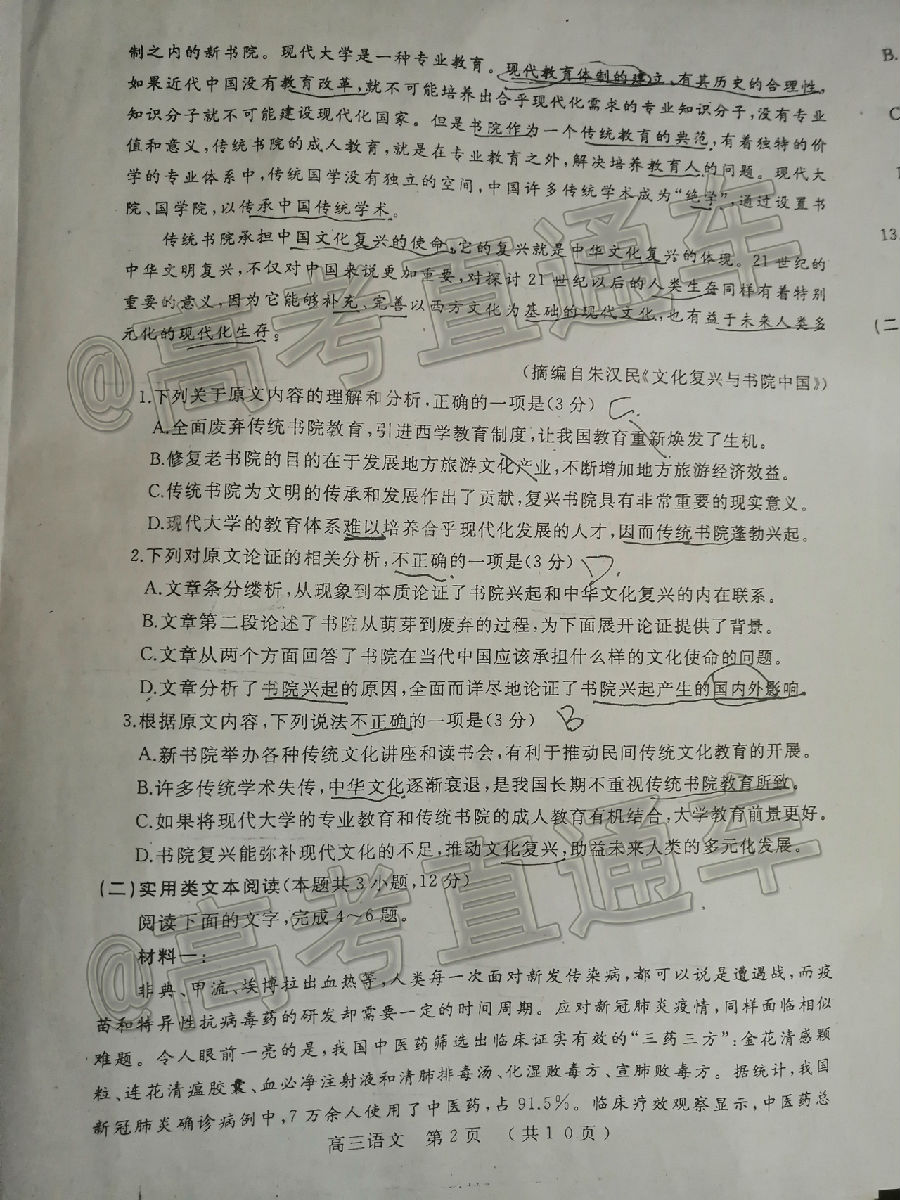 制之内的新书院。现代大学是一种专业教育。现代教育体制的建立,有其历史的合理性,
如果近代中国没有教育改革,就不可能培养出合乎现代化需求的专业知识分子,没有专业
知识分子就不可能建设现代化国家。但是书院作为一个传统教育的典范,有着独特的价
值和意义,传统书院的成人教育,就是在专业教育之外,解决培养教育人的问题。现代大
学的专业体系中,传统国学没有独立的空间,中国许多传统学术成为“绝学”,通过设置书
院、国学院,以传承中国传统学术。
传统书院承担中国文化复兴的使命,它的复兴就是中华文化复兴的体现。21世纪的
中华文明复兴,不仅对中国来说更加重要,对探讨21世纪以后的人类生存同样有着特别
重要的意义,因为它能够补充、完善以西方文化为基础的现代文化,也有益于未来人类多
元化的现代化生存。
(摘编自朱汉民《文化复兴与书院中国》)
1.下列关于原文内容的理解和分析,正确的一项是(3分) C
A.全面废弃传统书院教育,引进西学教育制度,让我国教育重新焕发了生机。
B.修复老书院的目的在于发展地方旅游文化产业,不断增加地方旅游经济效益。
C.传统书院为文明的传承和发展作出了贡献,复兴书院具有非常重要的现实意义。
D.现代大学的教育体系难以培养合乎现代化发展的人才,因而传统书院蓬勃兴起。
2.下列对原文论证的相关分析,不正确的一项是(3分) D
A.文章条分缕析,从现象到本质论证了书院兴起和中华文化复兴的内在联系。
B.文章第二段论述了书院从萌芽到废弃的过程,为下面展开论证提供了背景。
C.文章从两个方面回答了书院在当代中国应该承担什么样的文化使命的问题。
D.文章分析了书院兴起的原因,全面而详尽地论证了书院兴起产生的国内外影响。
3.根据原文内容,下列说法不正确的一项是(3分) B
A.新书院举办各种传统文化讲座和读书会,有利于推动民间传统文化教育的开展。
B.许多传统学术失传,中华文化逐渐衰退,是我国长期不重视传统书院教育所致。
C.如果将现代大学的专业教育和传统书院的成人教育有机结合,大学教育前景更好。
D.书院复兴能弥补现代文化的不足,推动文化复兴,助益未来人类的多元化发展。
(二)实用类文本阅读(本题共3小题,12分)
阅读下面的文字,完成4～6题。
材料一:
非典、甲流、埃博拉出血热等,人类每一次面对新发传染病,都可以说是遭遇战,而疫
苗和特异性抗病毒药的研发却需要一定的时间周期。应对新冠肺炎疫情,同样面临相似
难题。令人眼前一亮的是,我国中医药筛选出临床证实有效的“三药三方”:金花清感颗
粒、连花清瘟胶囊、血必净注射液和清肺排毒汤、化湿败毒方、宣肺败毒方。据统计,我国
新冠肺炎确诊病例中,7万余人使用了中医药,占91.5%。临床疗效观察显示,中医药总
高三语文 第2页 (共10页)
B.
C
13.
(二
@高考直通车
@高考直通车